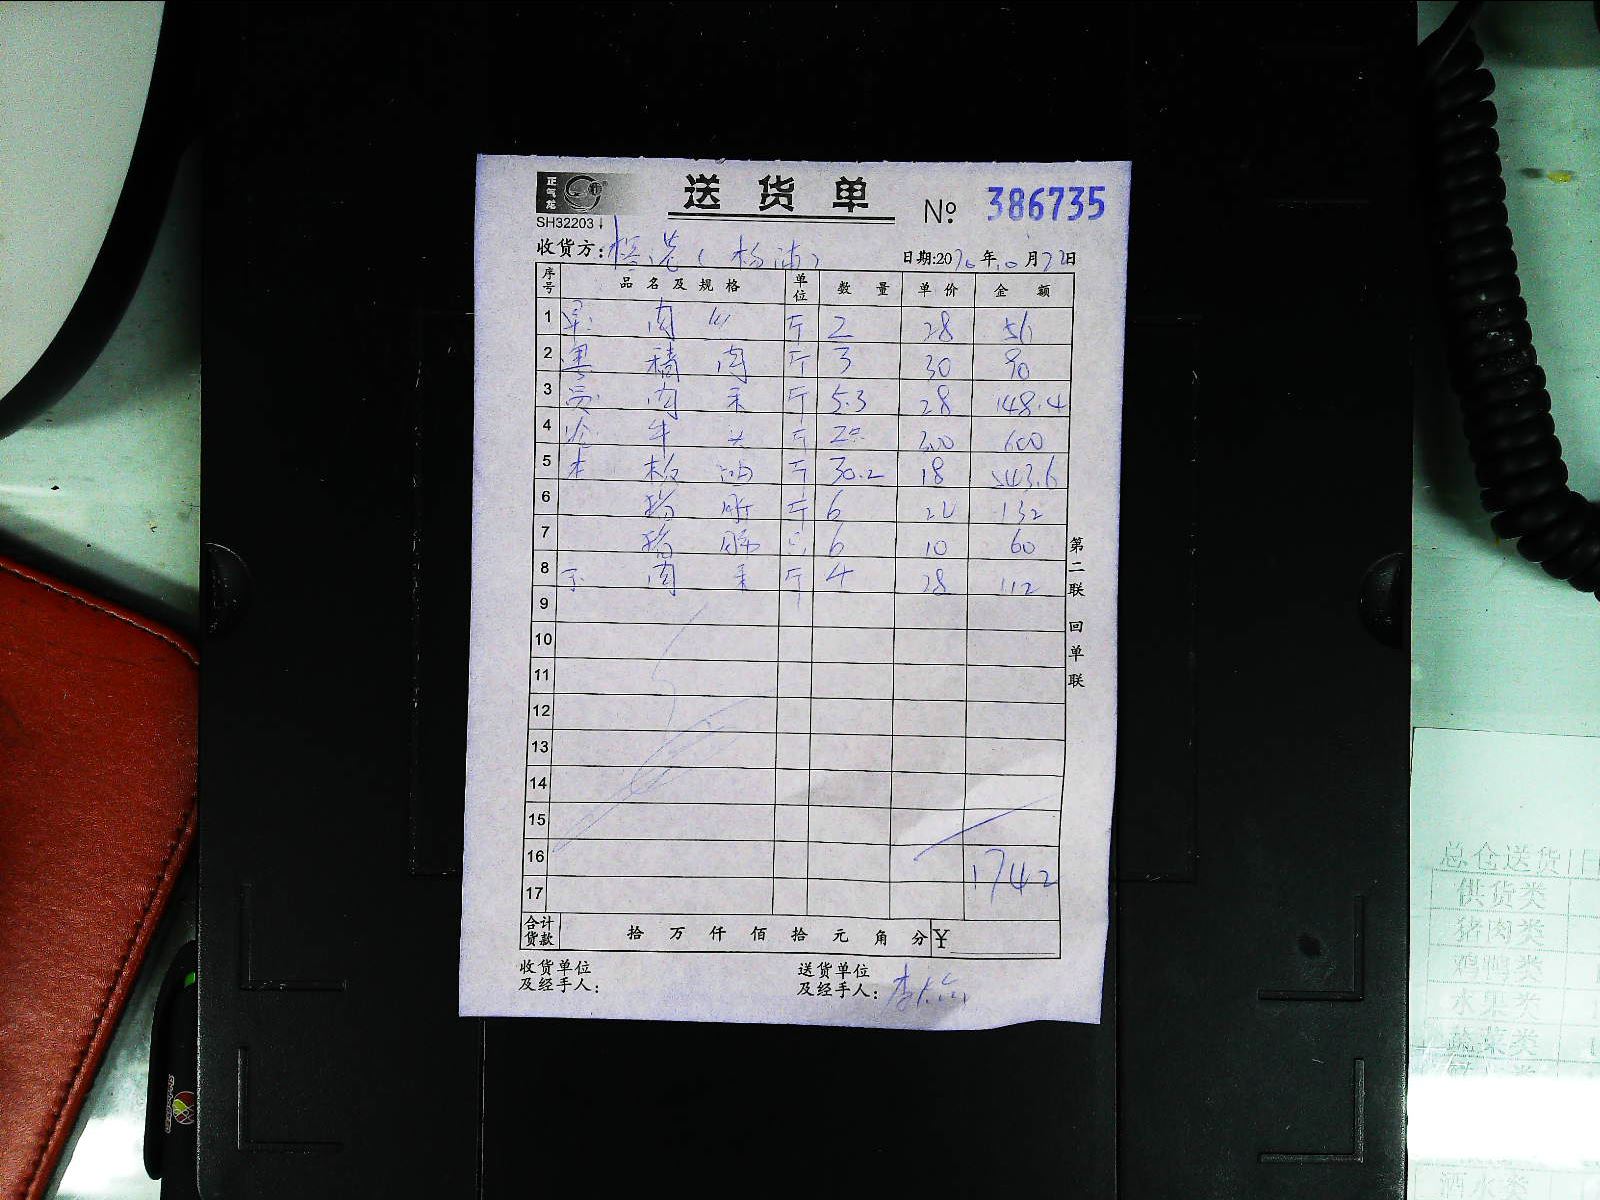 正气龙
送货单 № 386735
SH32203
收货方: (杨浦) 日期:2020年10月22日
序号 品名及规格 单位 数量 单价 金额
1 肉 斤 2 28 56
2 精肉 斤 3 30 90
3 肉末 斤 5.3 28 148.4
4 牛 斤 600
5 本板油 斤 30.2 18 543.6
6 猪肝 斤 6 22 132
7 猪脑 只 6 10 60
8 肉末 斤 4 28 112
9
10
11
12
13
14
15
16 1742
17
合计货款 拾 万 仟 佰 拾 元 角 分 ¥
收货单位及经手人: 送货单位及经手人: 李
第二联 回单联
总仓送货
供货类
猪肉类
鸡鸭类
水果类
蔬菜类
酒水类